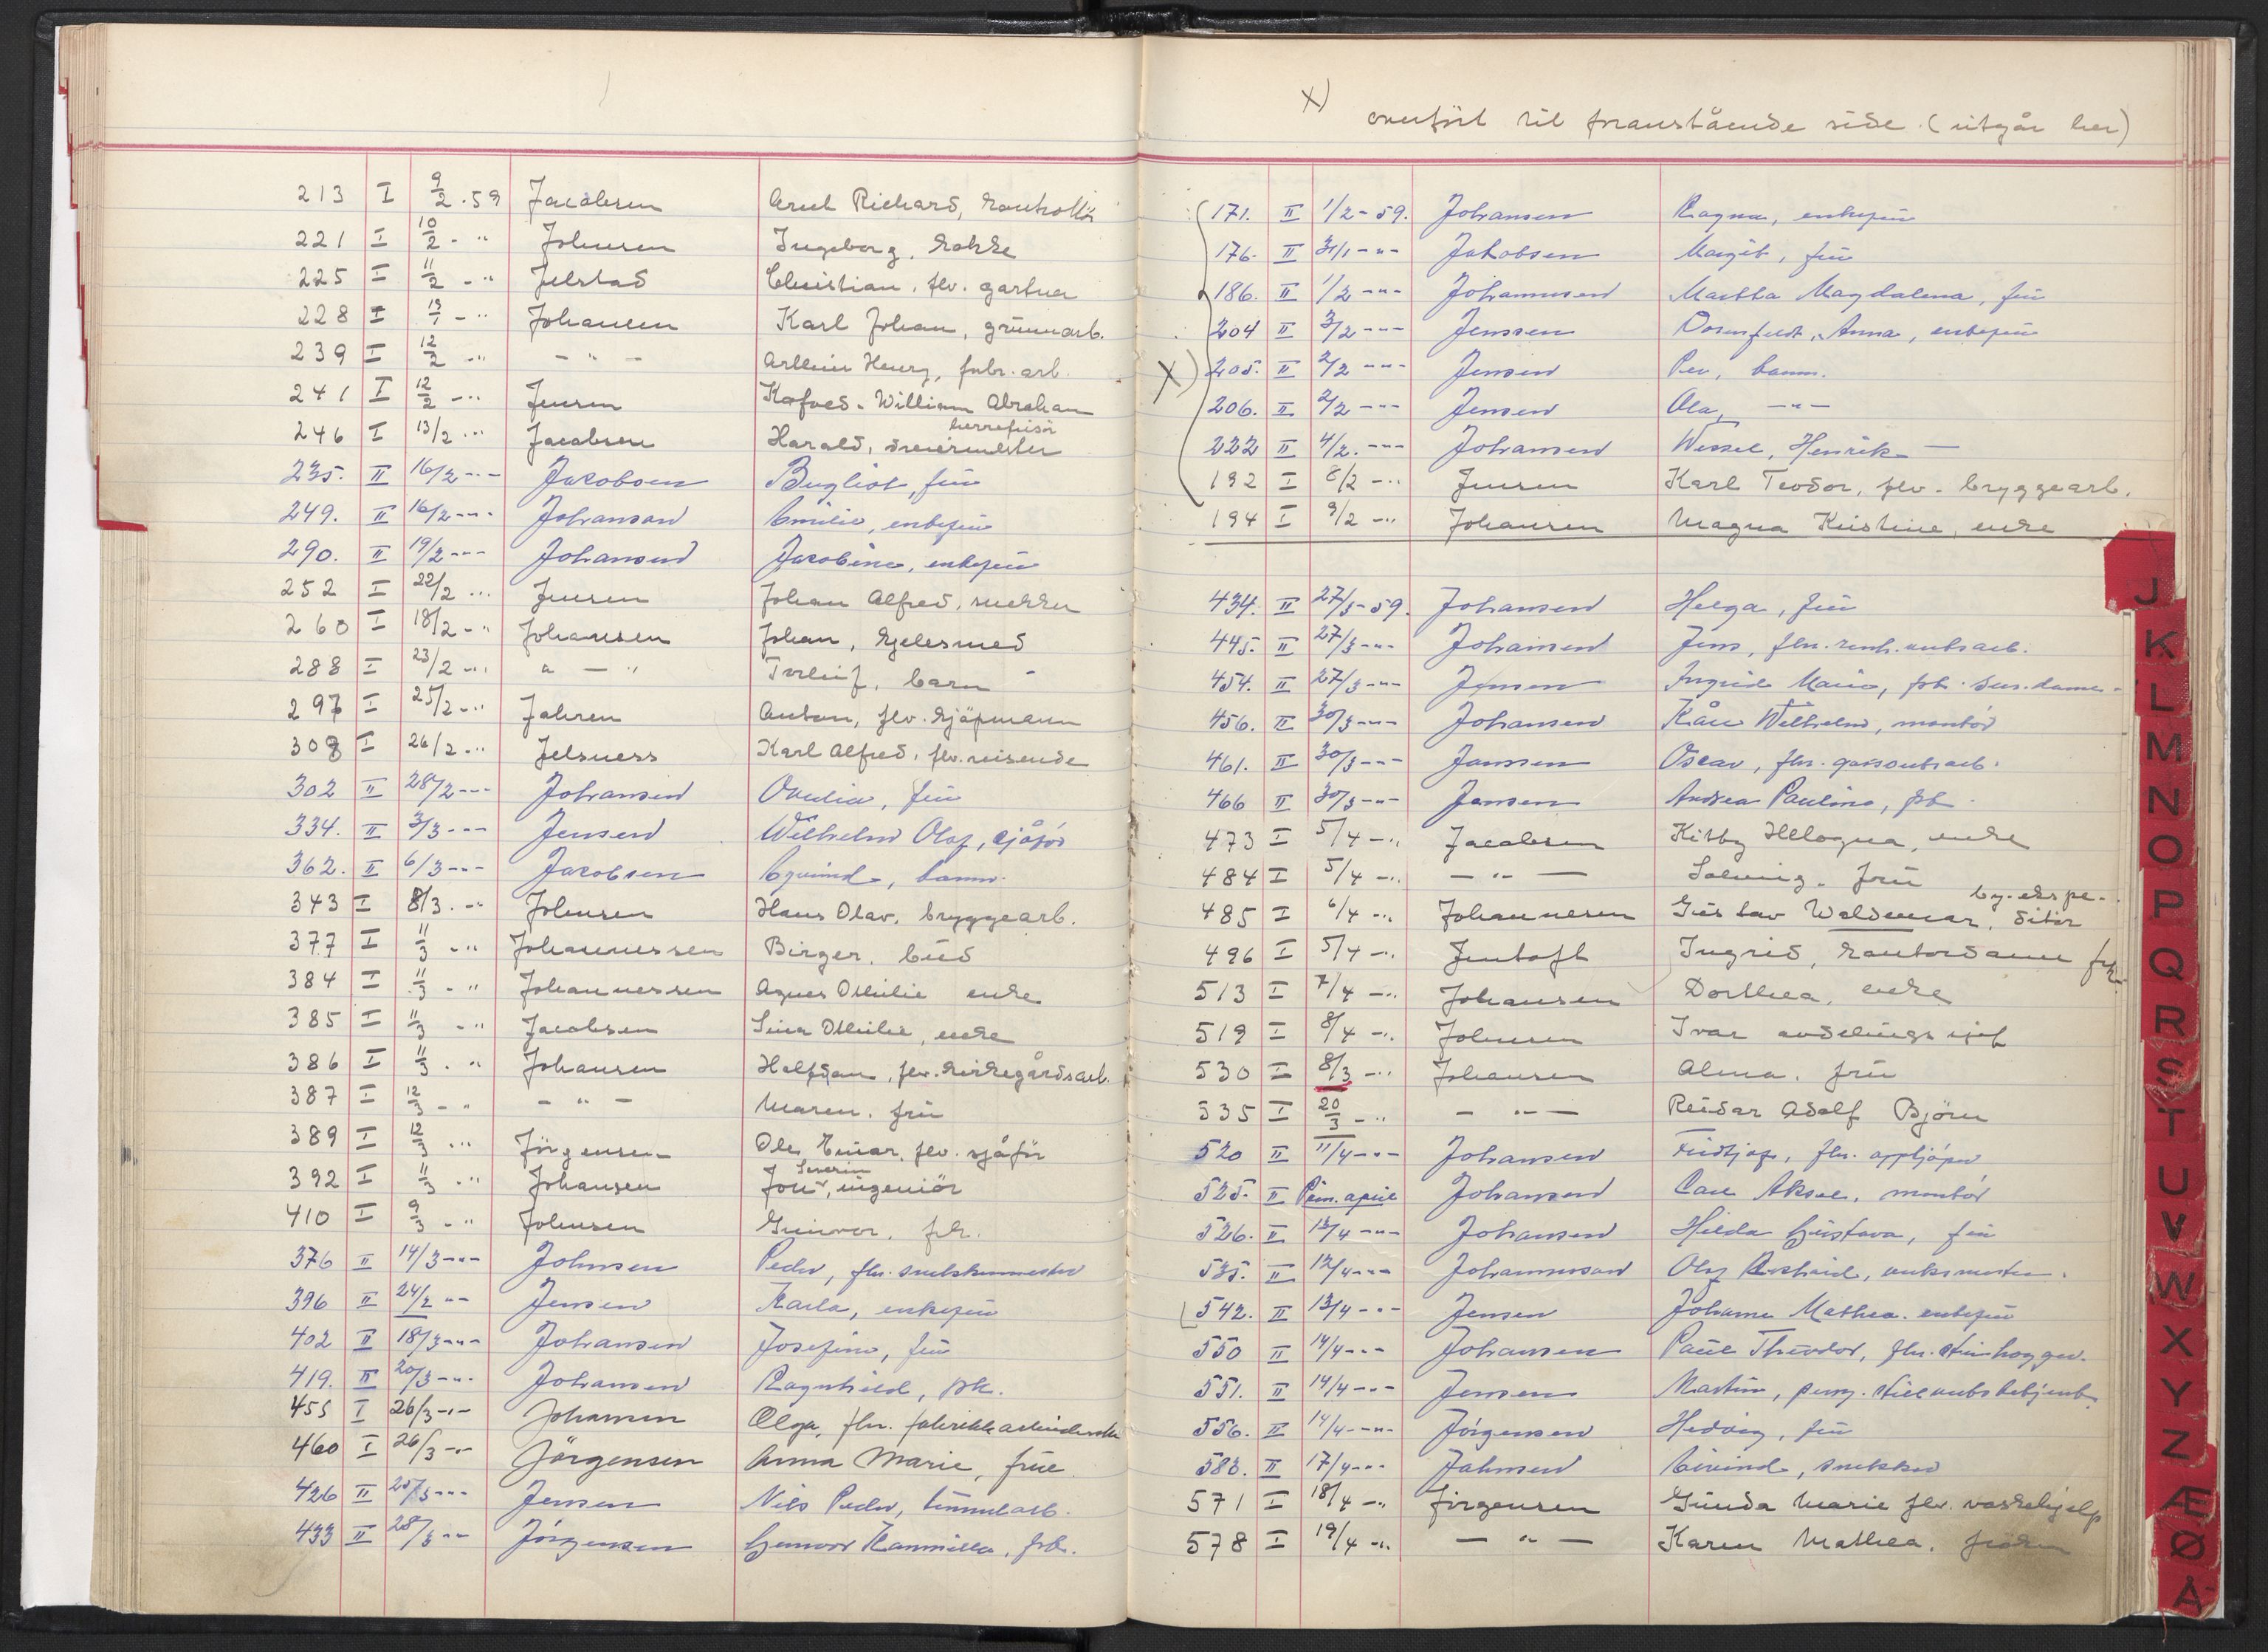 213 I 9/2 . 59 Jacobsen Arent Richard, kontrollør
221 I 10/2 - " Johnsen Ingeborg, kokke
225 I 11/2 - " Jelstad Christian, flv. gartner
228 I 13/1 - " Johansen Karl Johan, grunnarb.
239 I 12/2 - " - " - Henry, fabr. arb.
241 I 12/2 - " Jensen William Abraham
herrefrisør
246 I 13/2 - " Jacobsen Harald, dreiermester
235. II 16/2 - " - Jakobsen Bergliot, frue
249. II 16/2 - " - Johansen Emilie, enkefrue
290. II 19/2 - " - Johansen Jacobine, enkefrue
252 I 22/2 - " Jensen Johan Alfred, snekker
260 I 18/2 - " Johansen Johan, kjelesmed
288 I 23/2 - " " - " Torleif, barn
297 I 25/2 - " Jahren Anton, flv. kjøpmann
308 I 26/2 - " Jelsness Karl Alfred, flv. reisende
302 II 28/2 - " - Johansen Ovedia, frue
334. II 3/3 - " - Jensen Wilhelm Olaf, sjåfør
362. II 6/3 - " - Jacobsen Eyvind, barn.
343 I 8/3 . - " Johnsen Hans Olav, bryggearb.
377 I 11/3 - " Johannessen Birger, bud
384 I 11/3 - " Johannessen Agnes Othilie enke
385 I 11/3 - " Jacobsen Lina Othilie, enke
386 I 11/3 . " Johansen Halfdan, flv. kirkegårdsarb.
387 I 12/3 - " - " - Maren, fru
389 I 12/3 - " Jörgensen Ole Einar, flv. sjåför
392 I 11/3 - " Johansen Jon Severin, ingeniör
410 I 9/3 - " Johnsen Gunvor, frk.
376 II 14/3 - " - Johnsen Peder, fhv. snekkermester
396 II 24/2 - " - Jensen Karla, enkefrue
402 II 18/3 - " - Johansen Josefine, frue
419. II 20/3 - " - Johansen Ragnhild, frk.
455 I 26/3 - " - Johansen Olga, fhv. fabrikkarbeiderske
460 I 26/3 - " - Jörgensen Anna Marie, frue
426 II 25/3 - " - Jensen Nils Peder, tømmerarb.
433 II 28/3 - " - Jörgensen Gunvor Kammilla, frk.
X) overført til foranstående side (utgår her)
171. II 1/2 - 59. Johansen Ragna, enkefrue
176. II 31/1 - " - Jakobsen Margit, frue
186. II 1/2 - " - Johannesen Martha Magdalena, frue
204 II 3/2 - " - Jenssen Anna, enkefrue
X) 205. II 2/2 - " - Jensen Per, barn.
206. II 2/2 - " - Jensen Ola, - " -
222 II 4/2. - " - Johansen Wessel, Henrik -
192 I 8/2 - " Jensen Karl Teodor, flv. bryggearb.
194 I 9/2 - " Johansen Magna Kristine, enke
434. II 27/3 - 59. Johansen Helga, frue
445. II 27/3 - " - Johansen Jens, fhv. renh.verksarb.
454. II 27/3 - " - Jensen Ingrid Marie, frk.
456. II 30/3 - " - Johansen Kåre Wilhelm, montør
461. II 30/3 - " - Janssen Oscar, fhv. gassverksarb.
466 II 30/3 - " - Jensen Andrea Pauline, frk.
473 I 5/4 - " Jacobsen Kitty, enke
484 I 5/4 - " - " - Solveig, fru
485 I 6/4 - " Johannesen Gustav Waldemar, by.ekspe-
ditør
496 I 5/4 - " Jentoft Ingrid, kontordame frk.
513 I 7/4 - " Johansen Dorthea, enke
519 I 8/4 - " Johnsen Ivar avdelingssjef
530 I 8/3 - " Johansen Alma, fru
535 I 20/3 - " - " - Reidar Adolf Björn
520 II 11/4 - " - Johansen Fridtjof, fhv. oppsjøper
525. II Pem. april Johansen Carl Aksel, montør
526. II 12/4 - " - Johansen Hilda Gustava, frue
535. II 12/4 - " - Johannesen Olaf, verksmester.
542. II 13/4 - " - Jensen Johanne Mathea, enkefrue
550 II 14/4 - " - Johansen Paul Theodor, fhv. steinhogger.
551. II 14/4 - " - Jensen Martin, pens.
556. II 14/4 - " - Jörgensen Hedvig, frue
583. II 17/4 - " - Johnsen Eivind, snekker
571 I 18/4 - " Jörgensen Gunda Marie flv. vaskehjelp
578 I 19/4 - " - " - Karen Mathea, frøken
J
K
L
M
N
O
P
Q
R
S
T
U
V
W
X
Y
Z
Æ
Ø
Å